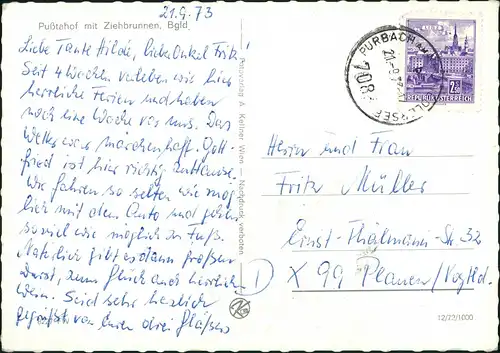 21.9.73
Pußtahof mit Ziehbrunnen, Bgld.
Liebe Tante Hilde, lieber Onkel Fritz!
Seit 4 Wochen verleben wir hier
herrliche Ferien und haben
noch eine Woche vor uns. Das
Wetter war märchenhaft. Gott-
fried ist hier richtig zuhause.
Wir fahren so selten wie mög
lich mit dem Auto und gehen
so viel wie möglich zu Fuß.
Natürlich gibt es dann großen
Durst, zum Glück auch herrlichen
Wein. Seid sehr herzlich
gegrüßt von Euren drei Gläsers
Postverlag A. Kellner Wien — Nachdruck verboten
PURBACH AM NEUSIEDLERSEE
7083
REPUBLIK ÖSTERREICH
2
Herrn und Frau
Fritz Müller
Ernst-Thälmann-Str 32
D X 99 Plauen/Vogtld.
12/72/1000